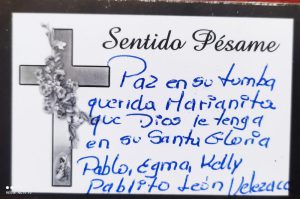 Sentido Pésame
Paz en su tumba
querida Marianita
que Dios le tenga
en su Santa Gloria
Pablo, Egma, Kelly
Pablito León